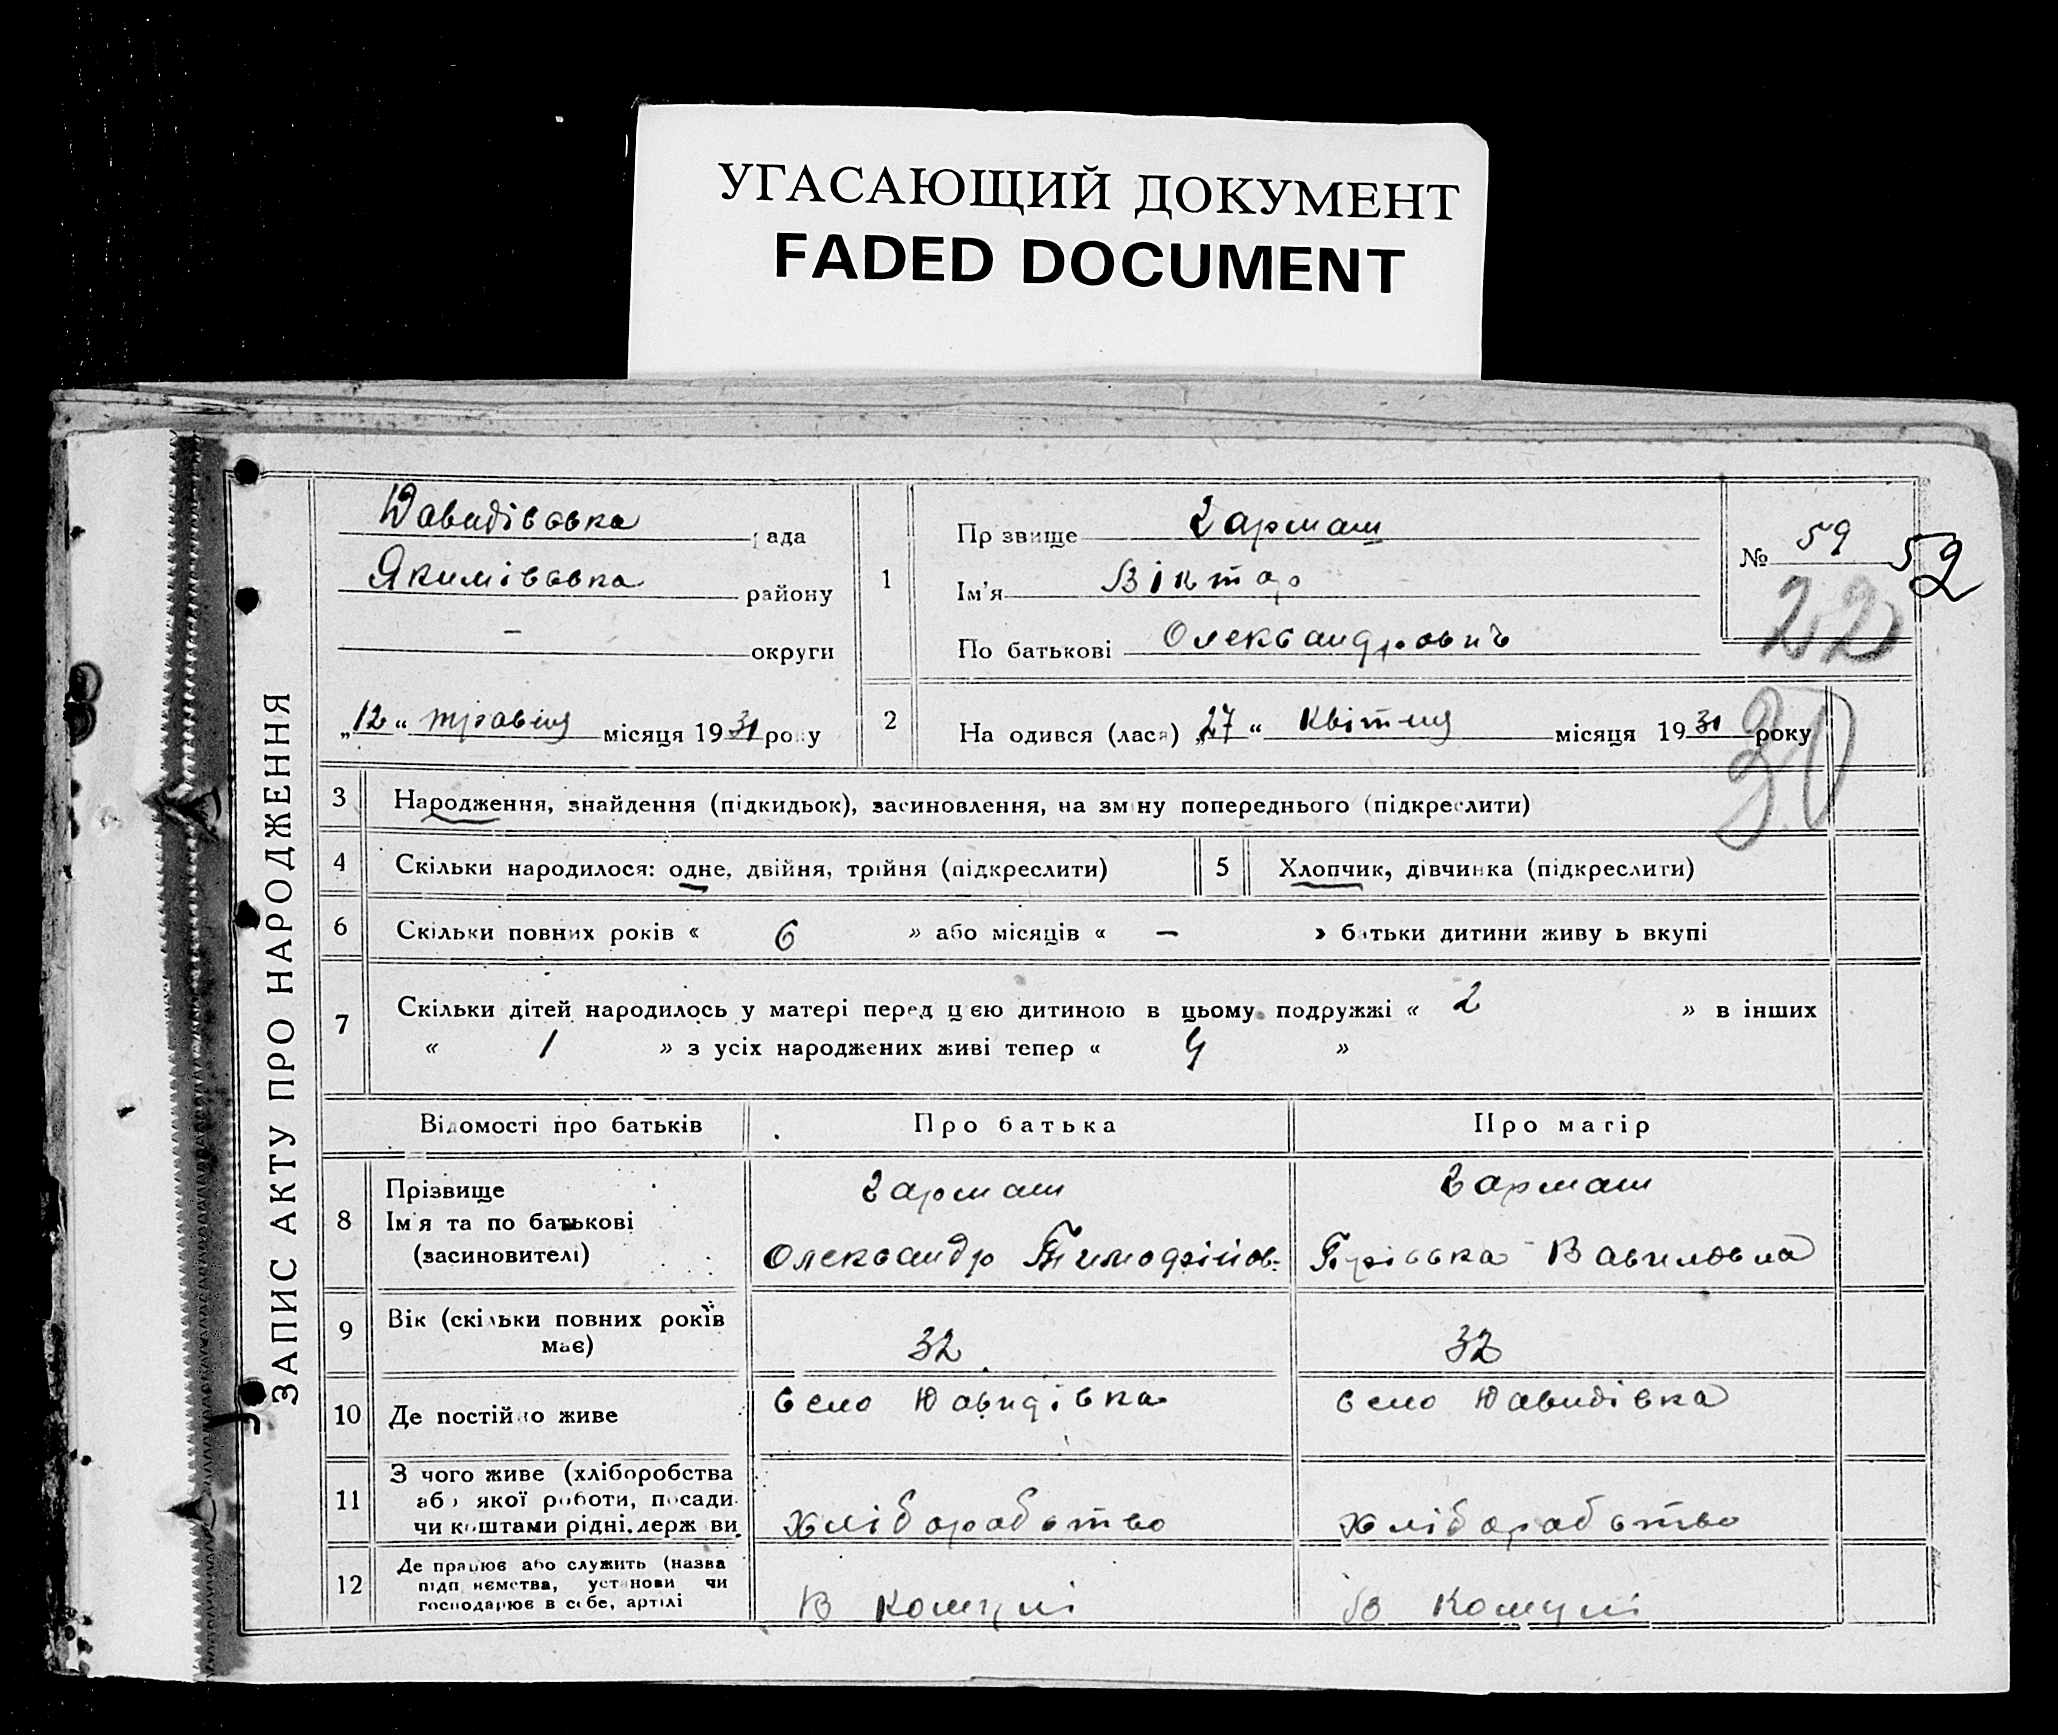 УГАСАЮЩИЙ ДОКУМЕНТ
FADED DOCUMENT
ЗАПИС АКТУ ПРО НАРОДЖЕННЯ
Давидівська рада
Якимівська району
— округи
„12“ травня місяця 1931 року
1
Прізвище Гармаш
Ім'я Віктор
По батькові Олександрович
№ 59
52
22
30
2
На одився (лася) „27“ квітня місяця 1931 року
3 Народження, знайдення (підкидьок), засиновлення, на зміну попереднього (підкреслити)
4 Скільки народилося: одне, двійня, трійня (підкреслити) 5 Хлопчик, дівчинка (підкреслити)
6 Скільки повних років « 6 » або місяців « — » батьки дитини живуть вкупі
7 Скільки дітей народилось у матері перед цією дитиною в цьому подружжі « 2 » в інших
« 1 » з усіх народжених живі тепер « 4 »
Відомості про батьків Про батька Про матір
8 Прізвище Гармаш Гармаш
Ім'я та по батькові
(засиновителі) Олександр Тимофійов. Вавиловна
9 Вік (скільки повних років
має) 32 32
10 Де постійно живе село Давидівка село Давидівка
11 З чого живе (хліборобства
або якої роботи, посади
чи коштами рідні, держави хліборобство хліборобство
12 Де працює або служить (назва
підприємства, установи чи
господарює в себе, артілі В комуні В комуні